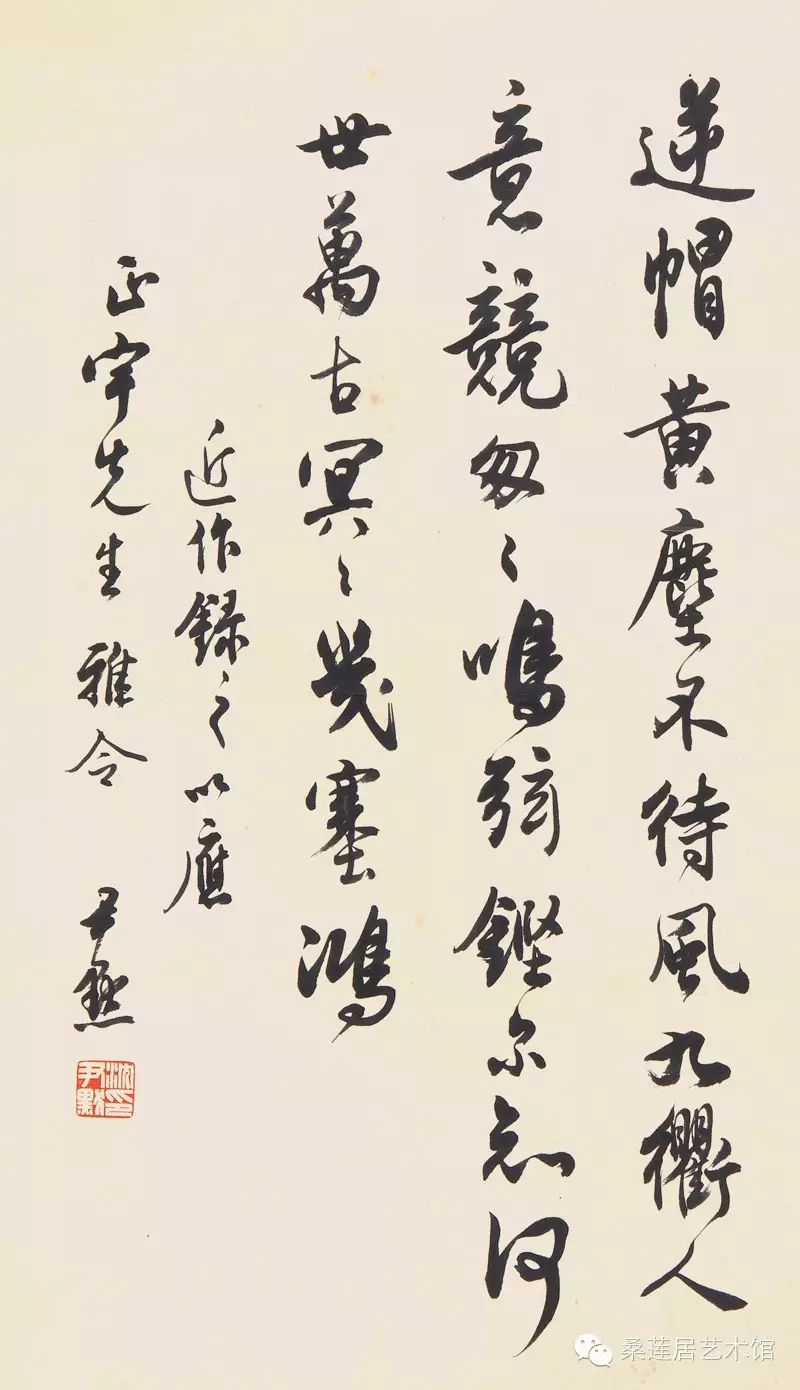 逆帽黄塵不待風九衢人
意競匆々鳴弦鏗尔忘何
世萬古冥々幾塞鴻
近作録之以應
正宇先生雅令
尹默
沈尹默印
桑莲居艺术馆